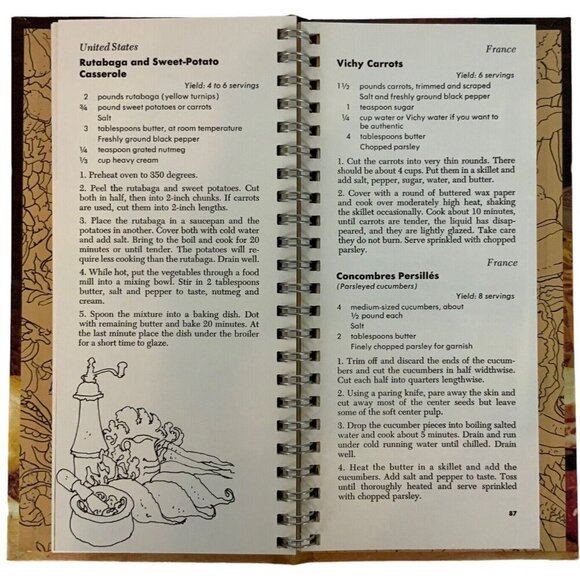 United States
Rutabaga and Sweet-Potato
Casserole
Yield: 4 to 6 servings
2 pounds rutabaga (yellow turnips)
¾ pound sweet potatoes or carrots
Salt
3 tablespoons butter, at room temperature
Freshly ground black pepper
¼ teaspoon grated nutmeg
⅓ cup heavy cream
1. Preheat oven to 350 degrees.
2. Peel the rutabaga and sweet potatoes. Cut
both in half, then into 2-inch chunks. If carrots
are used, cut them into 2-inch lengths.
3. Place the rutabaga in a saucepan and the
potatoes in another. Cover both with cold water
and add salt. Bring to the boil and cook for 20
minutes or until tender. The potatoes will re-
quire less cooking than the rutabaga. Drain well.
4. While hot, put the vegetables through a food
mill into a mixing bowl. Stir in 2 tablespoons
butter, salt and pepper to taste, nutmeg and
cream.
5. Spoon the mixture into a baking dish. Dot
with remaining butter and bake 20 minutes. At
the last minute place the dish under the broiler
for a short time to glaze.
France
Vichy Carrots
Yield: 6 servings
1½ pounds carrots, trimmed and scraped
Salt and freshly ground black pepper
1 teaspoon sugar
¼ cup water or Vichy water if you want to
be authentic
4 tablespoons butter
Chopped parsley
1. Cut the carrots into very thin rounds. There
should be about 4 cups. Put them in a skillet and
add salt, pepper, sugar, water, and butter.
2. Cover with a round of buttered wax paper
and cook over moderately high heat, shaking
the skillet occasionally. Cook about 10 minutes,
until carrots are tender, the liquid has disap-
peared, and they are lightly glazed. Take care
they do not burn. Serve sprinkled with chopped
parsley.
France
Concombres Persillés
(Parsleyed cucumbers)
Yield: 8 servings
4 medium-sized cucumbers, about
½ pound each
Salt
2 tablespoons butter
Finely chopped parsley for garnish
1. Trim off and discard the ends of the cucum-
bers and cut the cucumbers in half widthwise.
Cut each half into quarters lengthwise.
2. Using a paring knife, pare away the skin and
cut away most of the center seeds but leave
some of the soft center pulp.
3. Drop the cucumber pieces into boiling salted
water and cook about 5 minutes. Drain and run
under cold running water until chilled. Drain
well.
4. Heat the butter in a skillet and add the
cucumbers. Add salt and pepper to taste. Toss
until thoroughly heated and serve sprinkled
with chopped parsley.
87